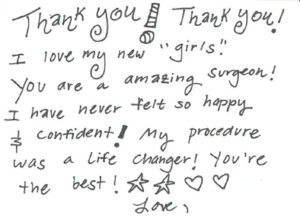 Thank you! Thank you!
I love my new "girls".
You are a amazing surgeon!
I have never felt so happy
& confident! My procedure
was a life changer! You're
the best! ☆ ☆ ♡ ♡
Love,